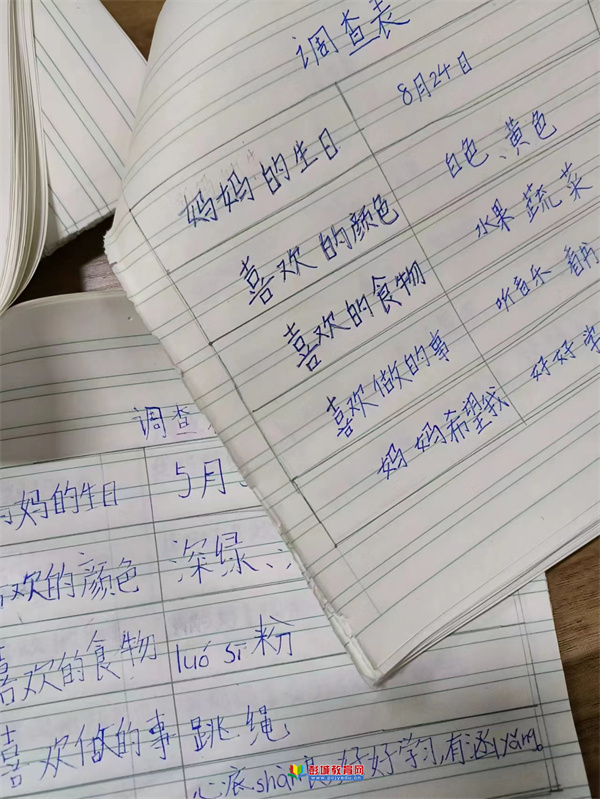 调查表
妈妈的生日 8月24日
喜欢的颜色 白色、黄色
喜欢的食物 水果 蔬菜
喜欢做的事 听音乐 看书
妈妈希望我 好好学
调查
妈妈的生日 5月
欢的颜色 深绿
喜欢的食物 luó sī粉
喜欢做的事 跳绳
心底shàn良 好好学习,有涵yǎng。
彭城教育网
www.pcjyw.com